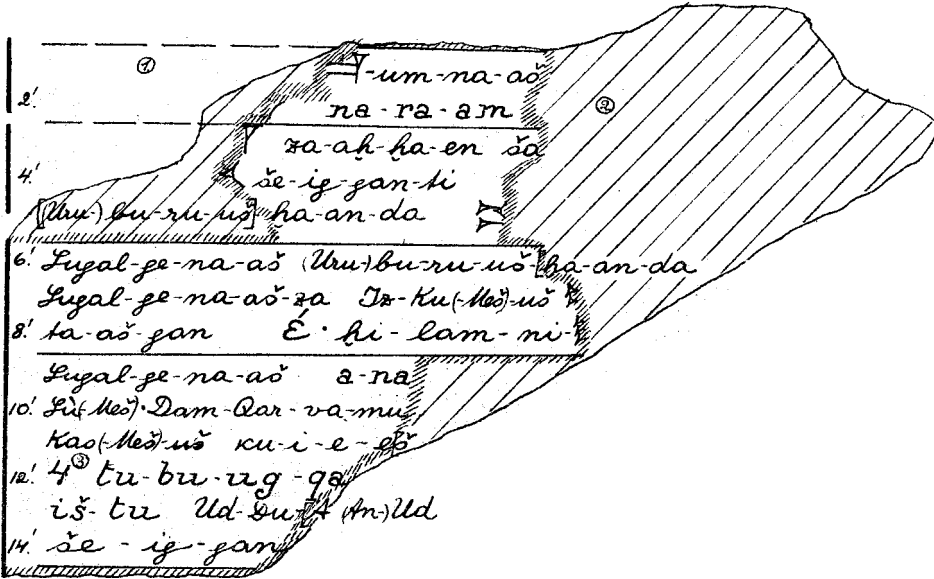 ① -um-na-aš
2'. na-ra-am ②
za-aḫ-ḫa-en ša
4'. še-ig-gan-ti
[(Uru-)bu-ru-uš] ḫa-an-da
6'. Lugal-ge-na-aš (Uru-)bu-ru-uš-[ḫa-an-da
Lugal-ge-na-aš-za Iz-Ku(-Meš)-uš
8'. ta-aš-gan É·ḫi-lam-ni-
Lugal-ge-na-aš a-na
10'. Lù(-Meš)·Dam-Qar-va-mu
Kas(-Meš)-uš ku-i-e-eš
12'. 4 ③ tu-bu-ug-qa
iš-tu Ud-Du-[A (An-)Ud
14'. še-ig-gan